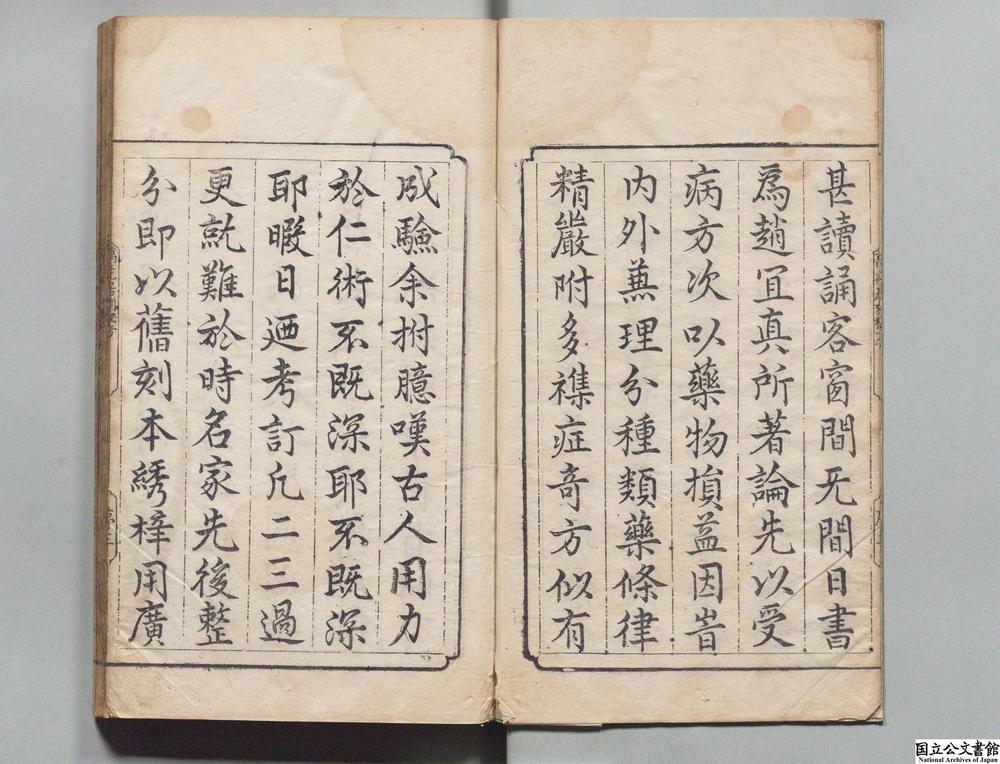 甚讀誦客窗間无間日書
爲趙冝真所著論先以受
病方次以藥物損益因㫖
内外兼理分種類藥條律
精嚴附多襍症竒方似有
成驗余拊臆嘆古人用力
於仁術不既深耶不既深
耶暇日廼考訂凢二三過
更就難於時名家先後整
分即以舊刻本綉梓用廣
国立公文書館
National Archives of Japan